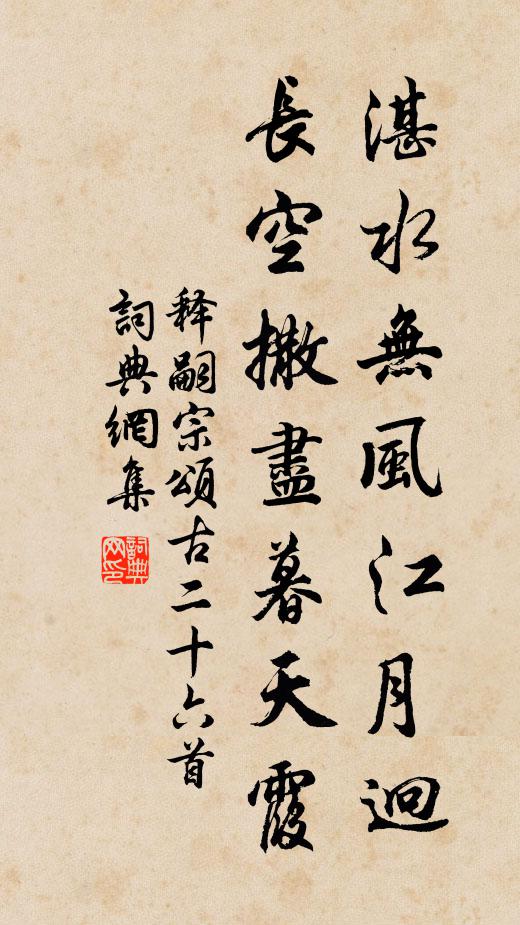 湛水無風江月迥
長空撒盡暮天霞
释嗣宗頌古二十六首
詞典網集
詞典网印